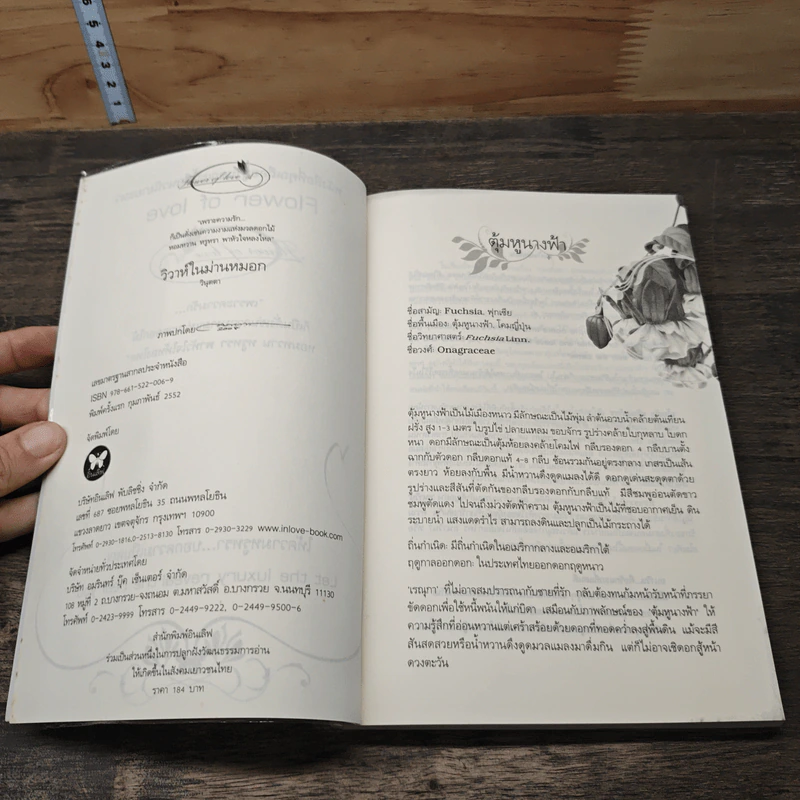 5 4 3 2 1
Flower of love
"เพราะความรัก...
ก็เป็นดั่งเช่นความงามแห่งมวลดอกไม้
หอมหวาน หรูหรา พาหัวใจหลงใหล"
วิวาห์ในม่านหมอก
วินุตตา
ภาพปกโดย
เลขมาตรฐานสากลประจำหนังสือ
ISBN 978-661-522-006-9
พิมพ์ครั้งแรก กุมภาพันธ์ 2552
จัดพิมพ์โดย
บริษัทอินเลิฟ พับลิชชิ่ง จำกัด
เลขที่ 687 ซอยพหลโยธิน 35 ถนนพหลโยธิน
แขวงลาดยาว เขตจตุจักร กรุงเทพฯ 10900
โทรศัพท์ 0-2930-1816,0-2513-8130 โทรสาร 0-2930-3229 www.inlove-book.com
จัดจำหน่ายทั่วประเทศโดย
บริษัท อมรินทร์ บุ๊ค เซ็นเตอร์ จำกัด
108 หมู่ที่ 2 ถ.บางกรวย-จงถนอม ต.มหาสวัสดิ์ อ.บางกรวย จ.นนทบุรี 11130
โทรศัพท์ 0-2423-9999 โทรสาร 0-2449-9222, 0-2449-9500-6
สำนักพิมพ์อินเลิฟ
ร่วมเป็นส่วนหนึ่งในการปลูกฝังวัฒนธรรมการอ่าน
ให้เกิดขึ้นในสังคมเยาวชนไทย
ราคา 184 บาท
ตุ้มหูนางฟ้า
ชื่อสามัญ: Fuchsia, ฟุกเซีย
ชื่อพื้นเมือง: ตุ้มหูนางฟ้า, โคมญี่ปุ่น
ชื่อวิทยาศาสตร์: Fuchsia Linn.
ชื่อวงศ์: Onagraceae
ตุ้มหูนางฟ้าเป็นไม้เมืองหนาว มีลักษณะเป็นไม้พุ่ม ลำต้นอวบน้ำคล้ายต้นเทียน
ฝรั่ง สูง 1-3 เมตร ใบรูปไข่ ปลายแหลม ขอบจักร รูปร่างคล้ายใบกุหลาบ ใบดก
หนา ดอกมีลักษณะเป็นตุ้มห้อยลงคล้ายโคมไฟ กลีบรองดอก 4 กลีบบานตั้ง
ฉากกับตัวดอก กลีบดอกแท้ 4-8 กลีบ ซ้อนรวมกันอยู่ตรงกลาง เกสรเป็นเส้น
ตรงยาว ห้อยลงกับพื้น มีน้ำหวานดึงดูดแมลงได้ดี ดอกดูเด่นสะดุดตาด้วย
รูปร่างและสีสันที่ตัดกันของกลีบรองดอกกับกลีบแท้ มีสีชมพูอ่อนตัดขาว
ชมพูตัดแดง ไปจนถึงม่วงตัดฟ้าคราม ตุ้มหูนางฟ้าเป็นไม้ที่ชอบอากาศเย็น ดิน
ระบายน้ำ แสงแดดรำไร สามารถลงดินและปลูกเป็นไม้กระถางได้
ถิ่นกำเนิด: มีถิ่นกำเนิดในอเมริกากลางและอเมริกาใต้
ฤดูกาลออกดอก: ในประเทศไทยออกดอกฤดูหนาว
'เรณุกา' ที่ไม่อาจสมปรารถนากับชายที่รัก กลับต้องทนก้มหน้ารับหน้าที่ภรรยา
ขัดดอกเพื่อใช้หนี้พนันให้แก่บิดา เสมือนกับภาพลักษณ์ของ 'ตุ้มหูนางฟ้า' ให้
ความรู้สึกที่อ่อนหวานแต่เศร้าสร้อยด้วยดอกที่ทอดคว่ำลงสู่พื้นดิน แม้จะมีสี
สันสดสวยหรือน้ำหวานดึงดูดมวลแมลงมาดื่มกิน แต่ก็ไม่อาจเชิดดอกสู้หน้า
ดวงตะวัน